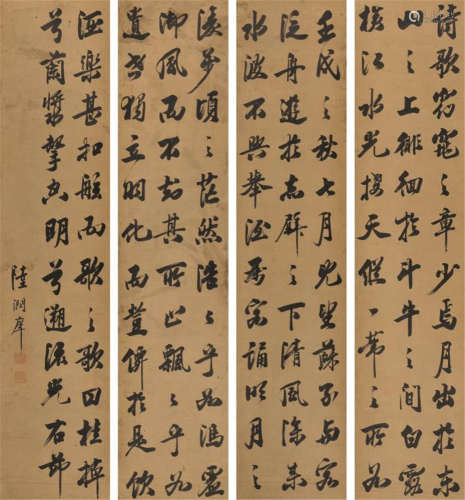 詩歌窈窕之章少焉月出於東
山之上徘徊於斗牛之間白露
橫江水光接天縱一葦之所如
壬戌之秋七月既望蘇子與客
泛舟遊於赤壁之下清風徐來
水波不興舉酒屬客誦明月之
凌萬頃之茫然浩浩乎如馮虛
御風而不知其所止飄飄乎如
遺世獨立羽化而登僊於是飲
酒樂甚扣舷而歌之歌曰桂棹
兮蘭槳擊空明兮溯流光右節
陸潤庠